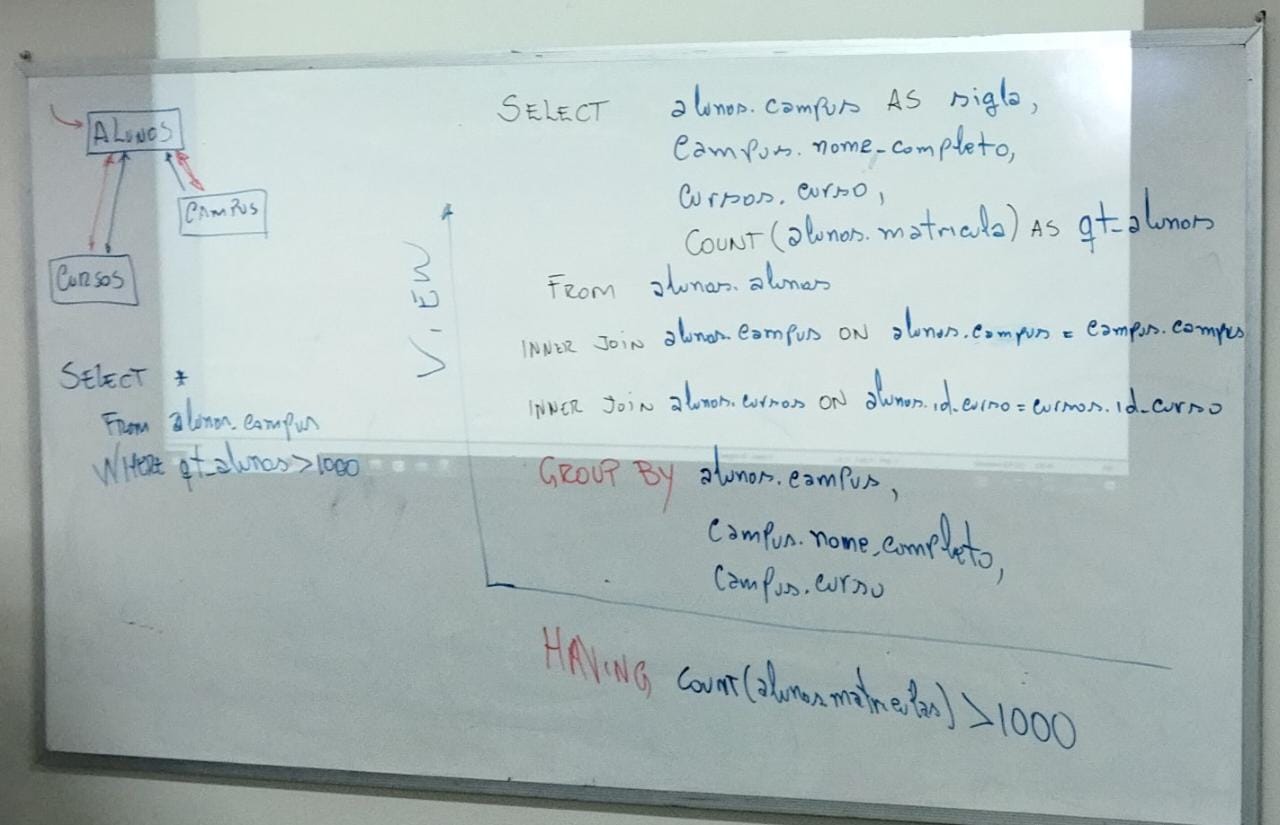 ALUNOS
CAMPUS
CURSOS
SELECT *
FROM alunos.campus
WHERE qt_alunos > 1000
VIEW
SELECT alunos.campus AS sigla,
campus.nome_completo,
cursos.curso,
COUNT(alunos.matricula) AS qt_alunos
FROM alunos.alunos
INNER JOIN alunos.campus ON alunos.campus = campus.campus
INNER JOIN alunos.cursos ON alunos.id_curso = cursos.id_curso
GROUP BY alunos.campus,
campus.nome_completo,
campus.curso
HAVING COUNT(alunos.matriculas) > 1000